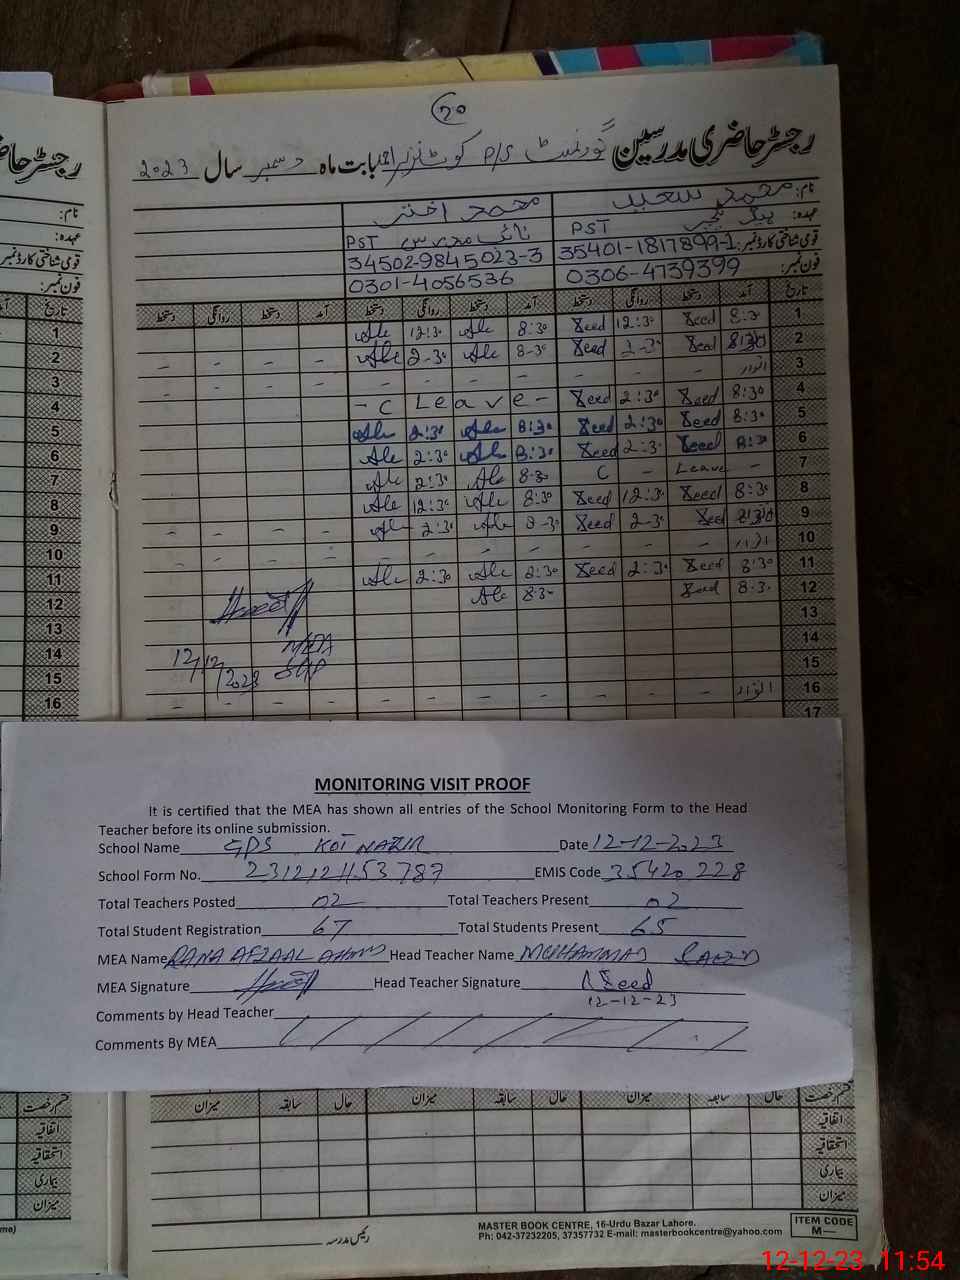 20
رجسٹر حاضری مدرسین گورنمنٹ P/S بابت ماہ دسمبر سال 2023
نام: محمد سعید محمد اختر
عہدہ: ہیڈ ٹیچر PST نائب مدرس PST
قومی شناختی کارڈ نمبر: 35401-1817899-1 34502-9845023-3
فون نمبر: 0306-4739399 0301-4056536
تاریخ آمد دستخط روانگی دستخط آمد دستخط روانگی دستخط آمد دستخط روانگی دستخط
1 8:30 Seed 12:30 Seed 8:30 Ale 12:30 Ale
2 8:30 Seed 2-30 Seed 8-30 Ale 2-30 Ale - - - -
3 اتوار - - - - - - - - - - -
4 8:30 Seed 2:30 Seed - C Leave -
5 8:30 Seed 2:30 Seed 8:30 Ale 2:30 Ale
6 8:30 Seed 2:30 Seed 8:30 Ale 2:30 Ale
7 - Leave - C 8:30 Ale 2:30 Ale
8 8:30 Seed 12:30 Seed 8:30 Ale 12:30 Ale
9 8:30 Seed 2-30 Seed 8-30 Ale 2:30 Ale - - - -
10 اتوار - - - - - - - - - - -
11 8:30 Seed 2:30 Seed 8:30 Ale 2:30 Ale
12 8:30 Seed 8:30 Ale
13
14 MEA
15 12/12/2023
16 اتوار - - - - - - - - - - -
17
MONITORING VISIT PROOF
It is certified that the MEA has shown all entries of the School Monitoring Form to the Head
Teacher before its online submission.
School Name GPS KOT NAZIR Date 12-12-2023
School Form No. 2312121153787 EMIS Code 35420228
Total Teachers Posted 02 Total Teachers Present 02
Total Student Registration 67 Total Students Present 65
MEA Name RANA AFZAAL AHMAD Head Teacher Name MUHAMMAD SAEED
MEA Signature Head Teacher Signature Seed
12-12-23
Comments by Head Teacher
Comments By MEA
قسم رخصت حال سابقہ میزان حال سابقہ میزان حال سابقہ میزان
اتفاقیہ
استحقاقیہ
بیماری
میزان
رئیس مدرسہ
MASTER BOOK CENTRE, 16-Urdu Bazar Lahore.
Ph: 042-37232205, 37357732 E-mail: masterbookcentre@yahoo.com
ITEM CODE
M—
12-12-23 11:54